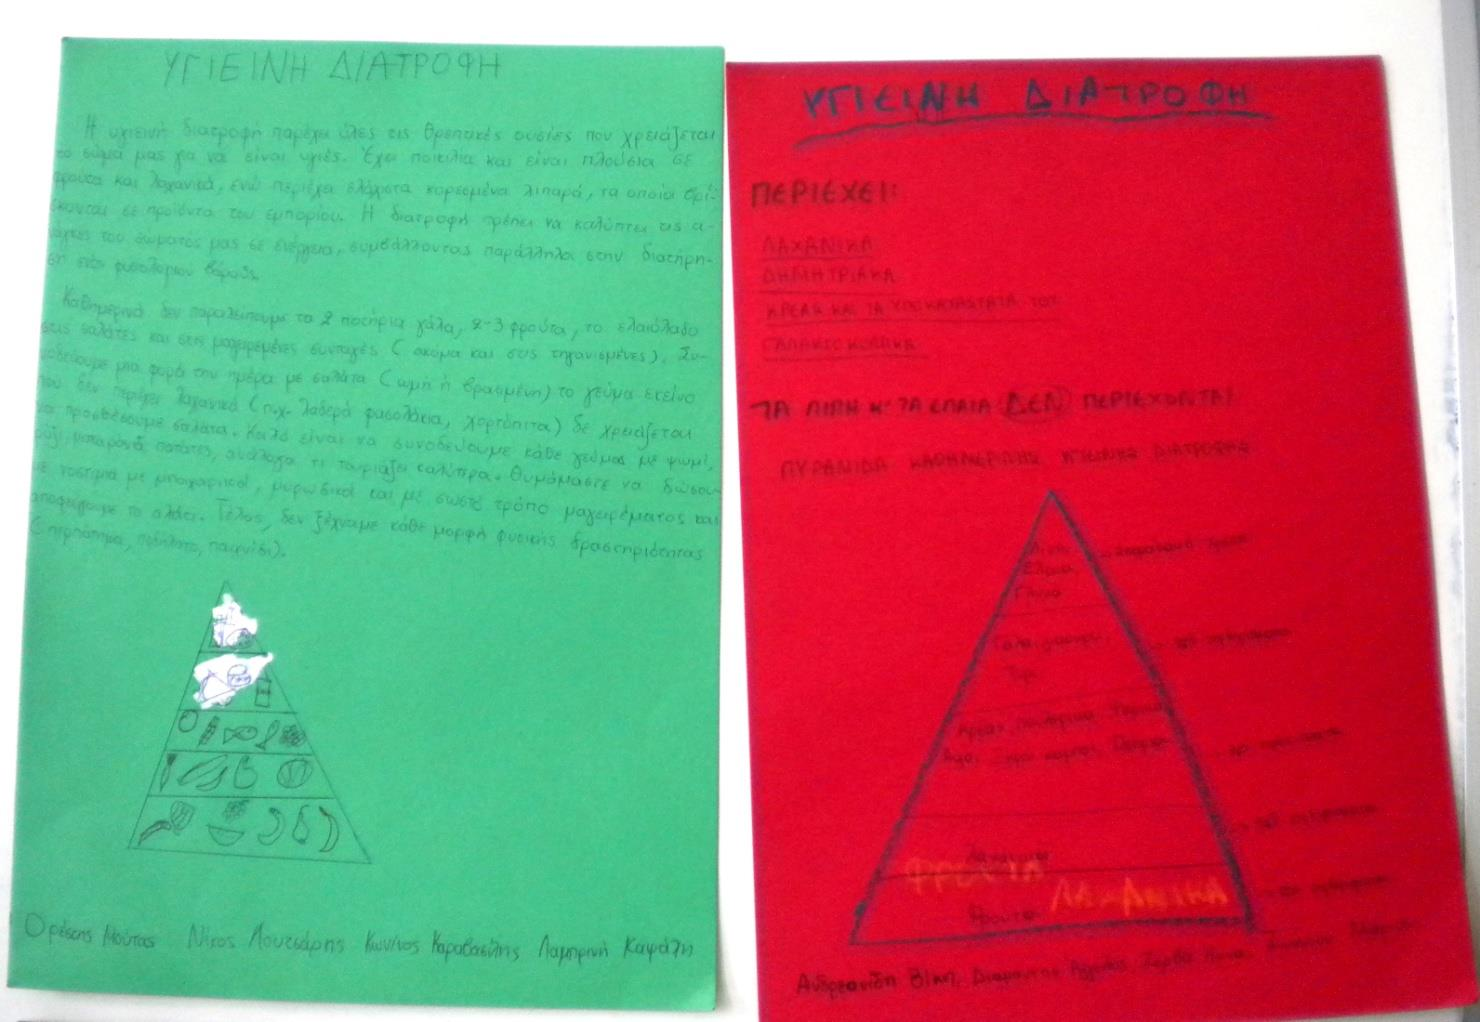 ΥΓΙΕΙΝΗ ΔΙΑΤΡΟΦΗ
Η υγιεινή διατροφή παρέχει όλες τις θρεπτικές ουσίες που χρειάζεται
το σώμα μας για να είναι υγιές. Έχει ποικιλία και είναι πλούσια σε
φρούτα και λαχανικά, ενώ περιέχει ελάχιστα κορεσμένα λιπαρά, τα οποία βρί-
σκονται σε προϊόντα του εμπορίου. Η διατροφή πρέπει να καλύπτει τις α-
νάγκες του σώματός μας σε ενέργεια, συμβάλλοντας παράλληλα στην διατήρη-
ση ενός φυσιολογικού βάρους.
Καθημερινά δεν παραλείπουμε τα 2 ποτήρια γάλα, 2-3 φρούτα, το ελαιόλαδο
στις σαλάτες και στις μαγειρεμένες συνταγές (ακόμα και στις τηγανισμένες). Συ-
νοδεύουμε μια φορά την ημέρα με σαλάτα (ωμή ή βρασμένη) το γεύμα εκείνο
που δεν περιέχει λαχανικά (π.χ. λαδερά φασολάκια, χορτόπιτα) δε χρειάζεται
να προσθέσουμε σαλάτα. Καλό είναι να συνοδεύουμε κάθε γεύμα με ψωμί,
ρύζι, μακαρόνια, πατάτες, ανάλογα τι ταιριάζει καλύτερα. Θυμόμαστε να δώσου-
με νοστιμιά με μπαχαρικά, μυρωδικά και με σωστό τρόπο μαγειρέματος και
αποφεύγουμε το αλάτι. Τέλος, δεν ξεχνάμε κάθε μορφή φυσικής δραστηριότητας
(περπάτημα, ποδήλατο, παιχνίδι).
Ορέστης Μούτας Νίκος Λουτσάρης Κων/νος Καραβασίλης Λαμπρινή Καψάλη
ΥΓΙΕΙΝΗ ΔΙΑΤΡΟΦΗ
ΠΕΡΙΕΧΕΙ:
ΛΑΧΑΝΙΚΑ
ΔΗΜΗΤΡΙΑΚΑ
ΚΡΕΑΣ ΚΑΙ ΤΑ ΥΠΟΚΑΤΑΣΤΑΤΑ ΤΟΥ
ΓΑΛΑΚΤΟΚΟΜΙΚΑ
ΤΑ ΛΙΠΗ Κ' ΤΑ ΕΛΑΙΑ ΔΕΝ ΠΕΡΙΕΧΟΝΤΑΙ
ΠΥΡΑΜΙΔΑ ΚΑΘΗΜΕΡΙΝΗΣ ΥΓΙΕΙΝΗΣ ΔΙΑΤΡΟΦΗΣ
Λίπη
Έλαια
Γλυκά
Γάλα, γιαούρτι,
Τυρί
Κρέας, Πουλερικά, Ψάρια
Αβγά, Ξηροί καρποί, Όσπρια
Λαχανικά
ΦΡΟΥΤΑ
Φρούτα ΛΑΧΑΝΙΚΑ
Ανδρεανίδη Βίκη,